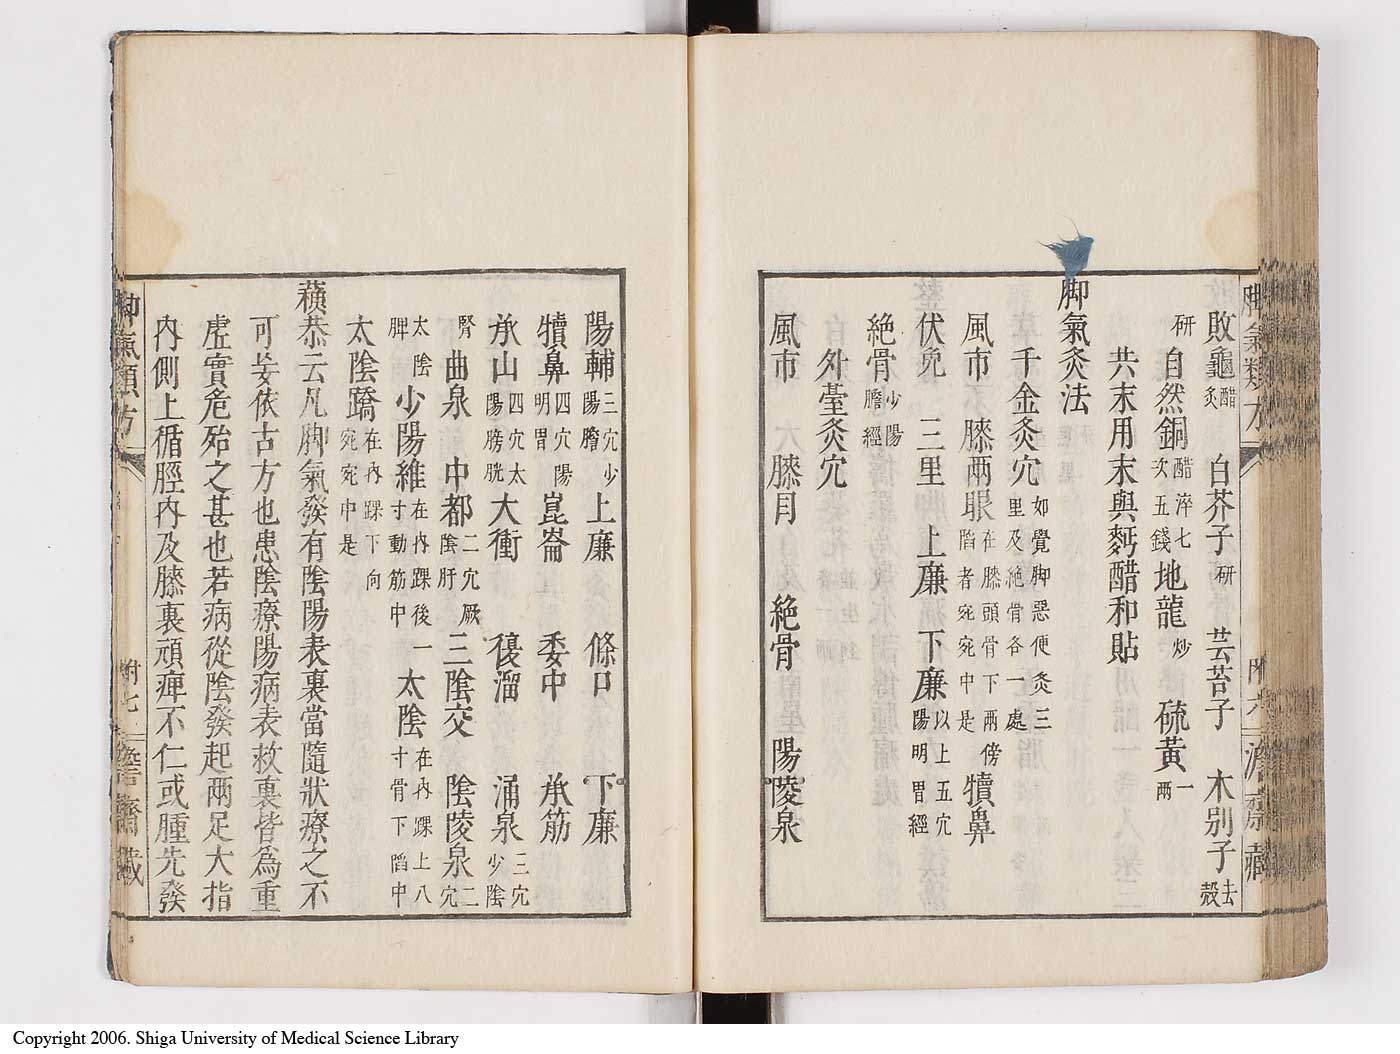 敗龜醋炙 白芥子研 芸苔子 木別子去殼
研 自然銅醋淬七次五錢 地龍炒 硫黃一兩
共末用末與麪醋和貼
脚氣灸法
千金灸穴如覺脚惡便灸三里及絶骨各一處
風市 膝兩眼在膝頭骨下兩傍陷者宛宛中是 犢鼻
伏兎 三里 上廉 下廉以上五穴陽明胃經
絶骨少陽膽經
外臺灸穴
風市 大膝目 絶骨 陽陵泉
脚氣類方 附六 濟齋藏
陽輔三穴少陽膽 上廉 條口 下廉
犢鼻四穴陽明胃 崑崙 委中 承筋
承山四穴太陽膀胱 大衝 復溜 涌泉三穴少陰
腎 曲泉 中都二穴厥陰肝 三陰交 陰陵泉二穴
太陰脾 少陽維在內踝後一寸動筋中 太陰在內踝上八寸骨下陷中
太陰蹻在內踝下向宛宛中是
蘋恭云凡脚氣發有陰陽表裏當隨狀療之不
可妄依古方也患陰療陽病表救裏皆爲重
虛實危殆之甚也若病從陰發起兩足大指
內側上循脛內及膝裏頑痺不仁或腫先發
脚氣類方 附七 齋藏
Copyright 2006. Shiga University of Medical Science Library